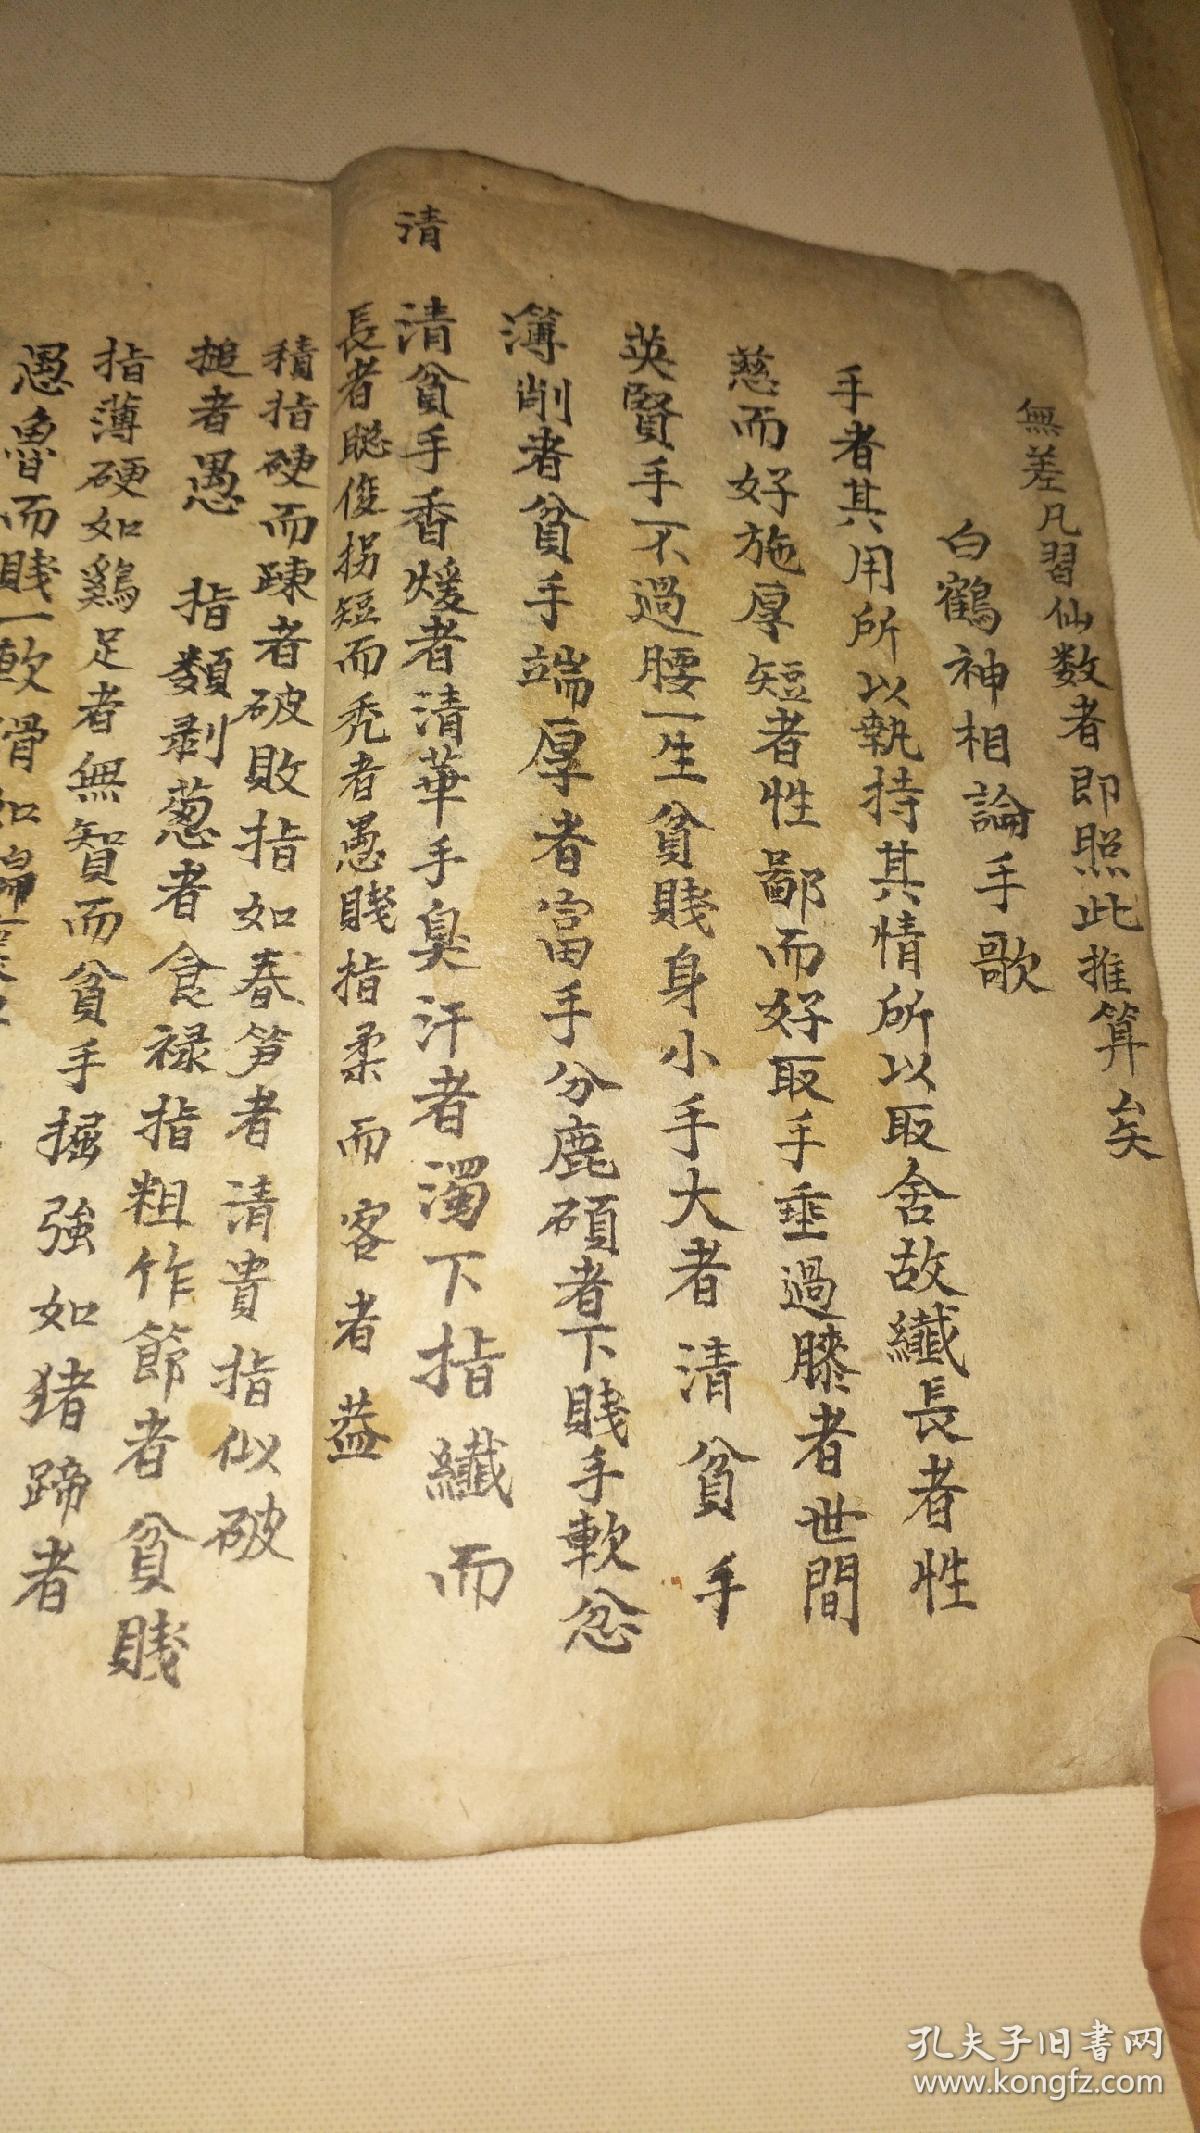 無差凡習仙数者即照此推算矣
白鶴神相論手歌
手者其用所以執持其情所以取舍故纖長者性
慈而好施厚短者性鄙而好取手垂過膝者世間
英賢手不過腰一生貧賤身小手大者清貧手
薄削者貧手端厚者富手分鹿碩者下賤手軟忿
清
清貧手香煖者清華手臭汗者濁下指纖而
長者聡俊拐短而秃者愚賤指柔而客者益
積指硬而踈者破敗指如春笋者清貴指似破
搥者愚 指類剥葱者食禄指粗竹節者貧賤
指薄硬如鷄足者無智而貧手掘強如猪蹄者
愚魯而賤一軟滑如
孔夫子旧书网
www.kongfz.com